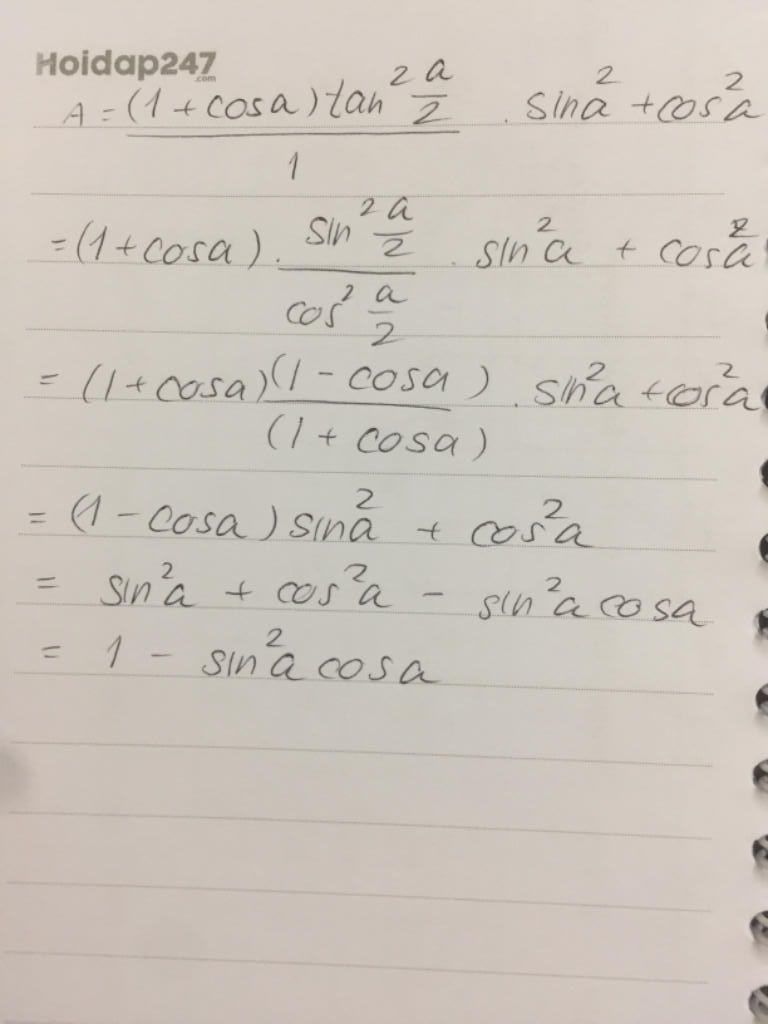 Hoidap247
.com
A = (1 + cosa) tan² a/2 / 1 . sina² + cos²a
= (1 + cosa) . sin² a/2 / cos² a/2 . sin²a + cosa²
= (1 + cosa) (1 - cosa) / (1 + cosa) . sin²a + cos²a
= (1 - cosa) sina² + cos²a
= sin²a + cos²a - sin²a cosa
= 1 - sin²a cosa